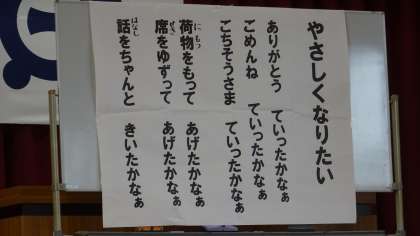 やさしくなりたい
ありがとう ていったかなぁ
ごめんね ていったかなぁ
ごちそうさま ていったかなぁ
荷物をもって あげたかなぁ
席をゆずって あげたかなぁ
話をちゃんと きいたかなぁ